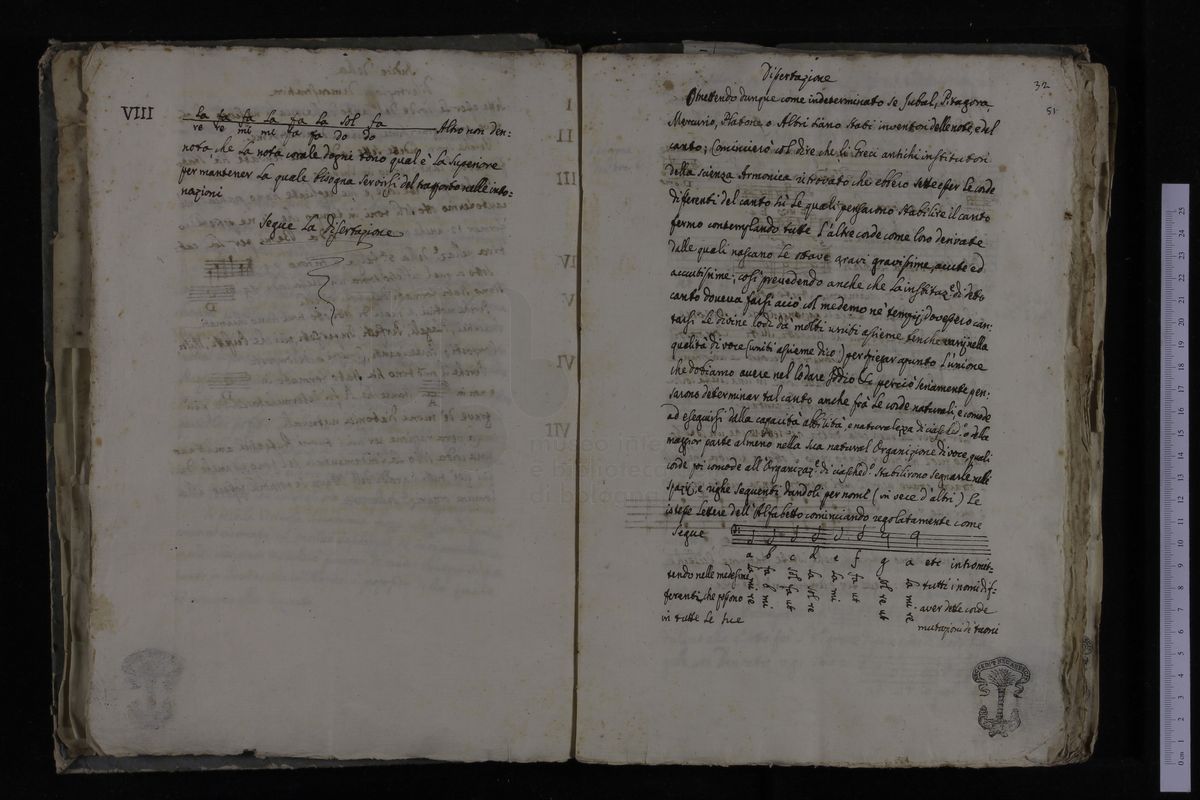 VIII
La fa fa La fa La sol fa
re re mi mi fa fa do do Altro non den:
nota che La nota corale dogni tono qual è La superiore
per mantener La quale bisogna servirsi del trasporto nelle into-
nazioni
Segue La Disertazione
Disertazione
32
51
Omettendo dunque come indeterminato se Jubal, Pitagora,
Mercurio, Platone o Altri siano stati inventori delle note, e del
canto; Comincierò col dire che li Greci antichi institutori
della scienza Armonica ritrovato che ebbero sette esser Le corde
differenti del canto su Le quali pensarono stabilire il canto
fermo contemplando tutte L'altre corde come loro derivate
dalle quali nascano Le ottave gravi gravissime, acute ed
accutissime; così prevedendo anche che La institaz.e di detto
canto doveva farsi acciò col medemo nè tempij dovessero can-
tarsi Le divine Lodi da molti uniti assieme benche varij nella
qualità di voce (uniti assieme dico) per spiegar apunto L'unione
che dobiamo avere nel Lodare Iddio perciò seriamente pen-
sarono determinar tal canto anche frà Le corde naturali, e comode
ad eseguirsi dalla capacità abilità, e naturalezza di ciasched.o o dela
maggior parte almeno nella sua natural Organizione di voce, quali
corde poi comode all'Organizaz.e di ciasched.o stabilirono segnarle nelli
spazij, e righe seguenti dandoli per nomi (in vece d'altri) Le
istesse Lettere dell'Alfabetto cominciando regolatamente come
segue
a b c d e f g a etc intromit-
tendo nelle medesime La mi re fa b mi sol fa ut La sol re La mi fa ut sol re ut La mi re tutti i nomi dif-
feranti, che possono aver dette corde
in tutte Le sue mutazioni di tuoni